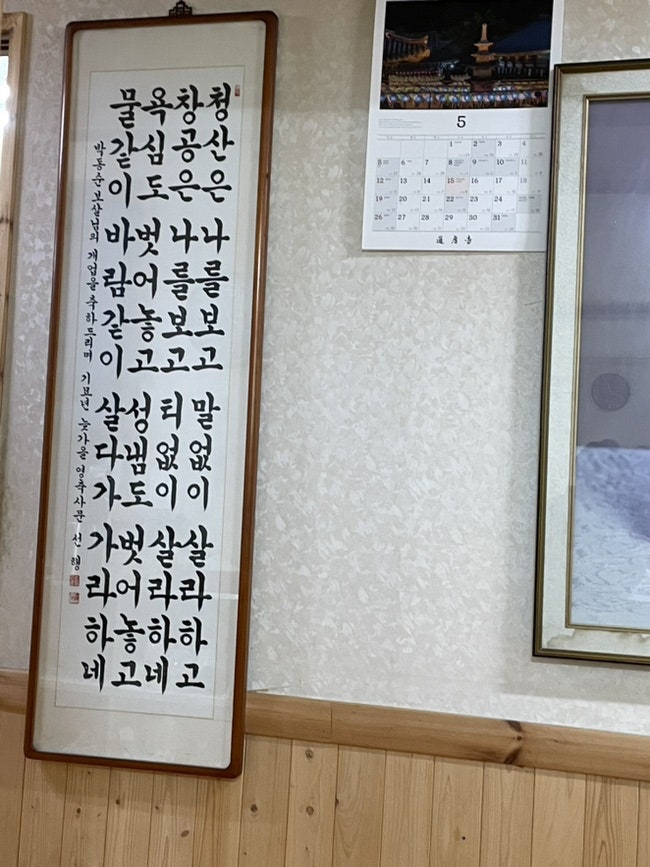 청산은 나를보고 말없이 살라하고
창공은 나를보고 티없이 살라하네
욕심도 벗어놓고 성냄도 벗어놓고
물같이 바람같이 살다가 가라하네
박동순보살님의 개업을 축하드리며 기묘년 늦가을 영축사문 선행
5
1 2 3 4
5 6 7 8 9 10 11
12 13 14 15 16 17 18
19 20 21 22 23 24 25
26 27 28 29 30 31